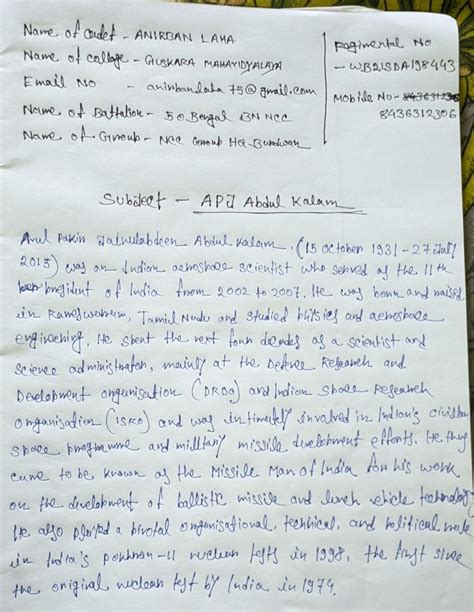 Name of cadet - ANIRBAN LAHA
Name of college - GUSKARA MAHAVIDYALAYA
Email NO - anirbanlaha75@gmail.com
Name of Battalion - 50 Bengal BN NCC
Name of Group - NCC Group HQ-Burdwan
Regimental No
- WB21SDA198443
Mobile No - 8436312306
8436312306
Subject - APJ Abdul Kalam
Avul Pakir Jainulabdeen Abdul Kalam. (15 october 1931 - 27 July
2015) was an Indian aerospace scientist who served as the 11th
president of India from 2002 to 2007. He was born and raised
in Rameswaram, Tamil Nadu and studied physics and aerospace
engineering. He spent the next four decades as a scientist and
science administrator, mainly at the Defence Research and
Development organisation (DRDO) and Indian Space Research
organisation (ISRO) and was intimately involved in Indian's civilian
space programme and military missile development efforts. He thus
came to be known as the Missile Man of India for his work
on the development of ballistic missile and lunch vehicle technology
He also played a pivotal organisational, technical, and political role
in India's pokhran-II nuclear tests in 1998, the first since
the original nuclear test by India in 1974.